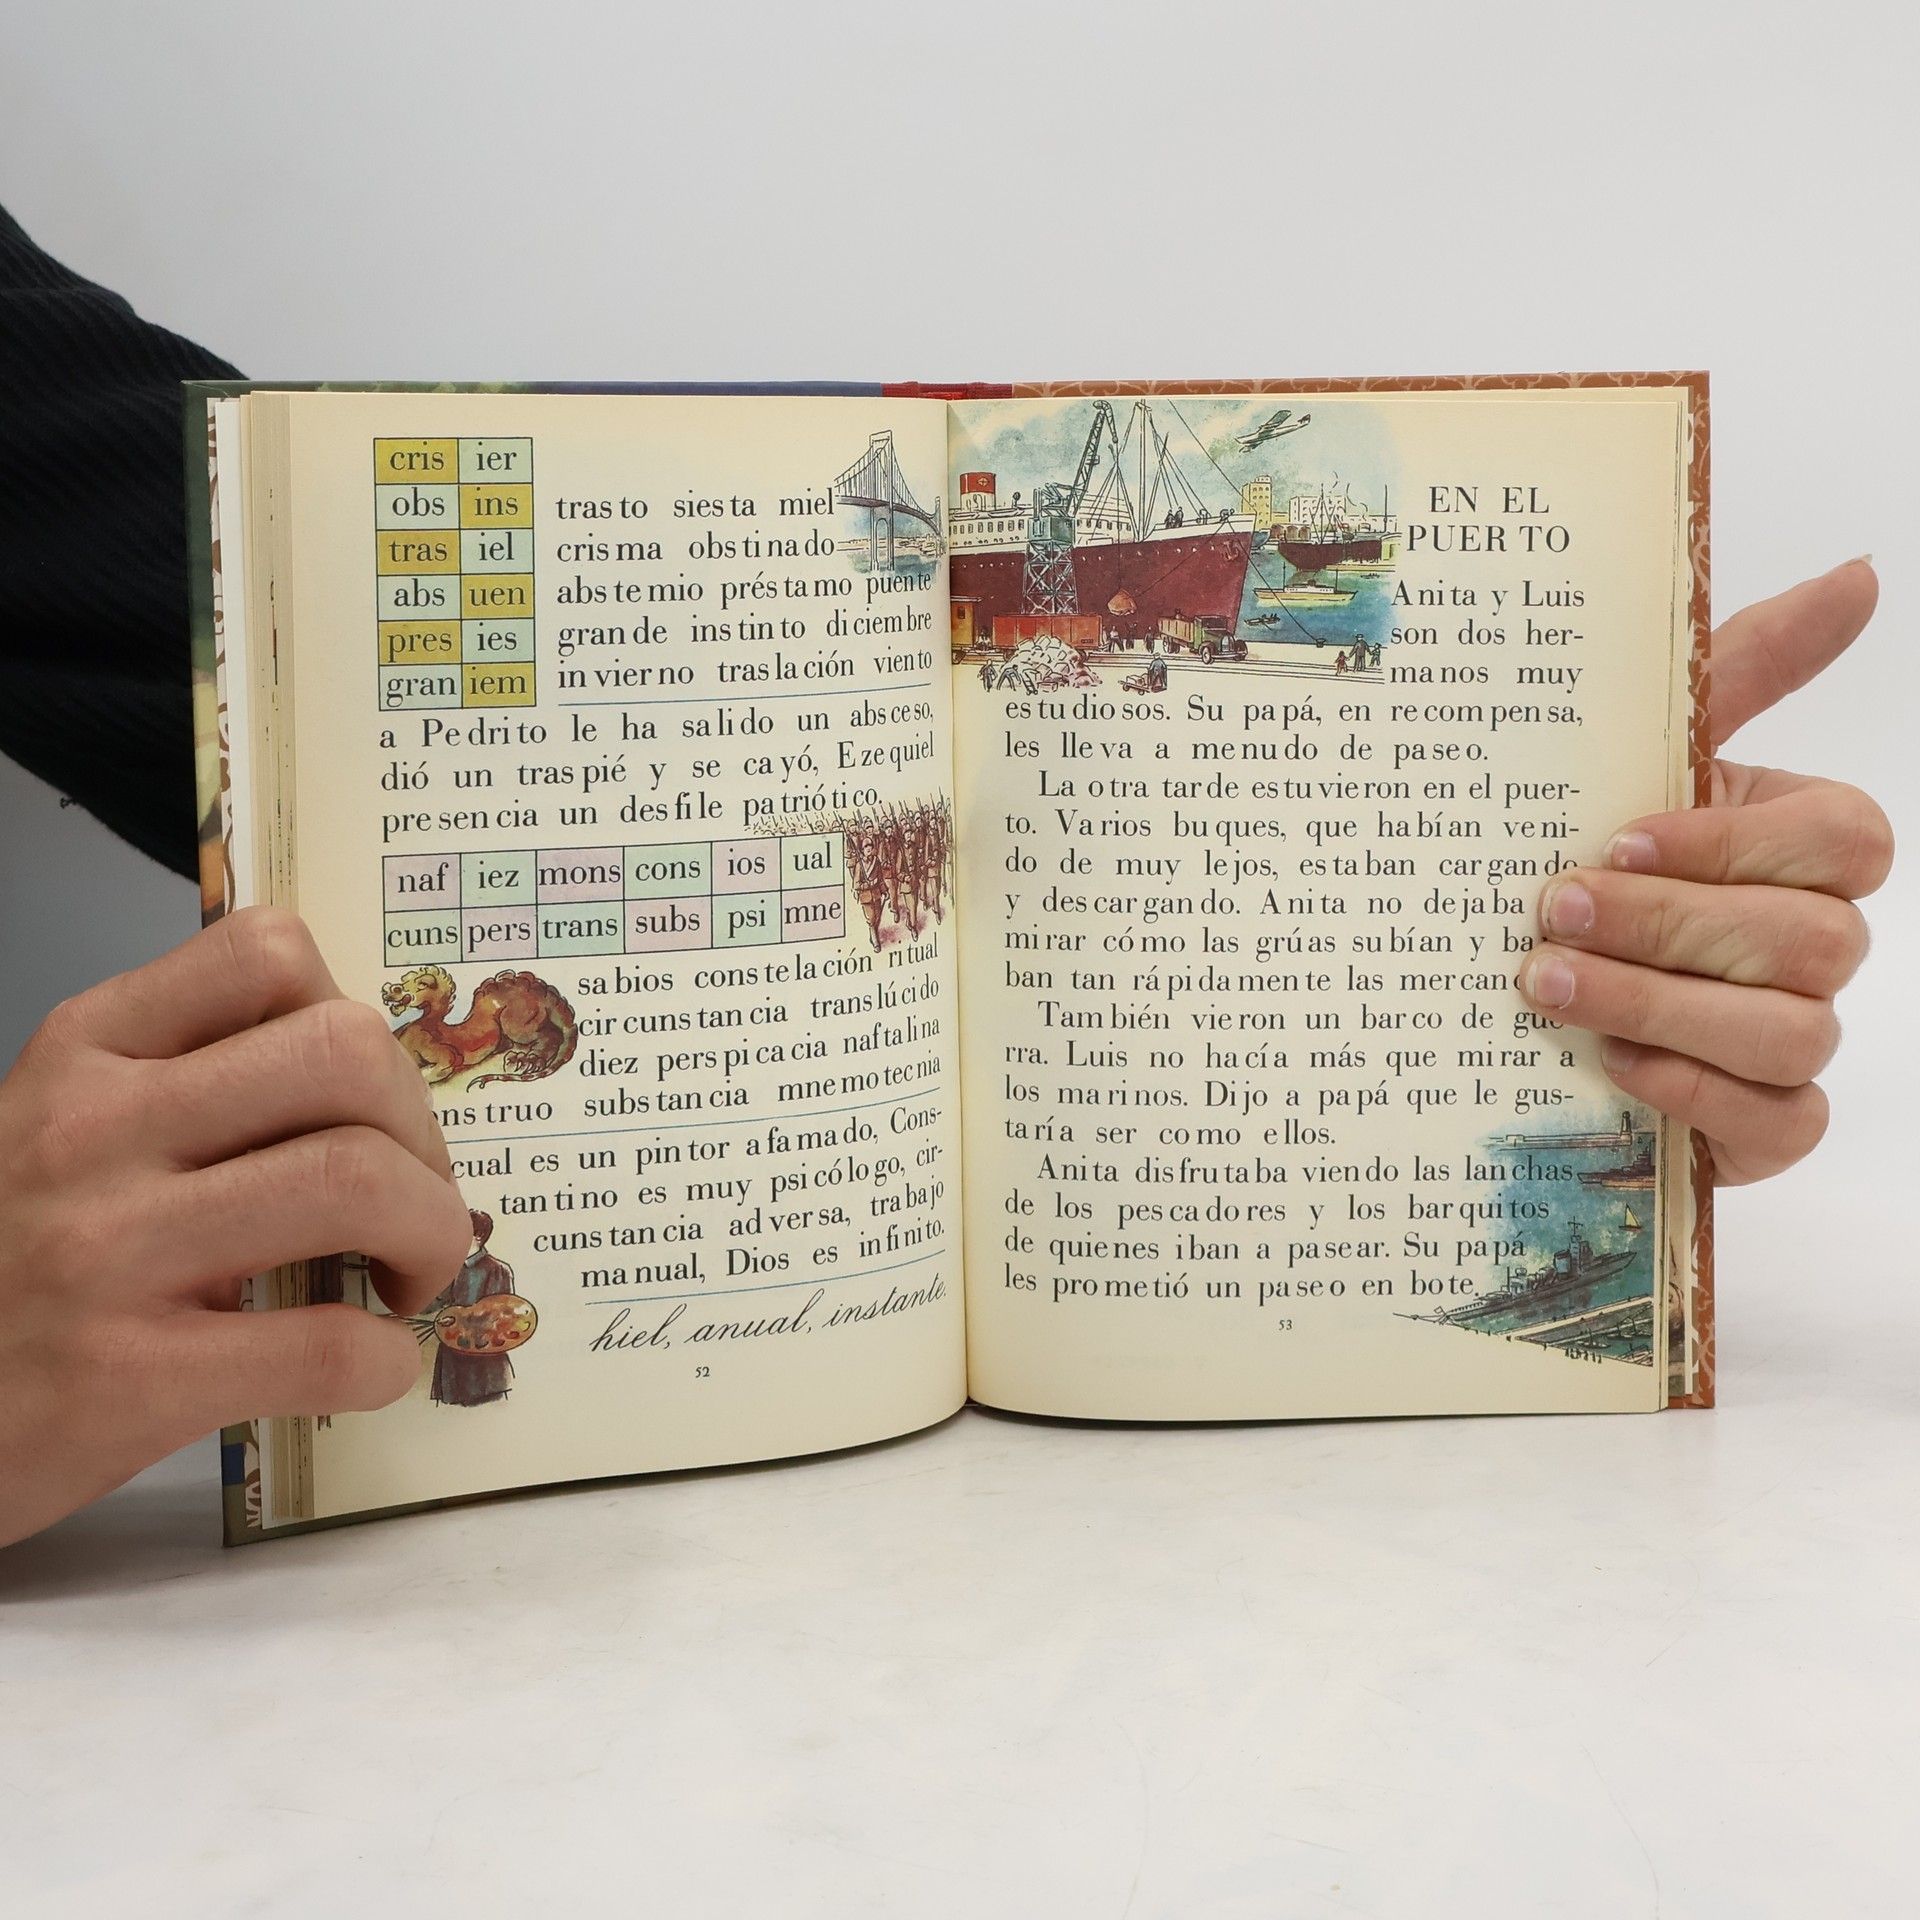 cris ier
obs ins
tras iel
abs uen
pres ies
gran iem
trasto siesta miel
crisma obstinado
abstemio préstamo puente
grande instinto diciembre
invierno traslación viento
a Pedrito le ha salido un absceso,
dió un traspié y se cayó, Ezequiel
presencia un desfile patriótico.
naf iez mons cons ios ual
cuns pers trans subs psi mne
sabios constelación ritual
circunstancia translúcido
diez perspicacia naftalina
substancia mnemotecnia
es un pintor afamado, Cons-
tantino es muy psicólogo, cir-
cunstancia adversa, trabajo
manual, Dios es infinito.
hiel, anual, instante.
52
EN EL
PUERTO
Anita y Luis
son dos her-
manos muy
estudiosos. Su papá, en recompensa,
les lleva a menudo de paseo.
La otra tarde estuvieron en el puer-
to. Varios buques, que habían veni-
do de muy lejos, estaban cargando
y descargando. Anita no dejaba
mirar cómo las grúas subían y
ban tan rápidamente las
También vieron un barco de gue-
rra. Luis no hacía más que mirar a
los marinos. Dijo a papá que le gus-
taría ser como ellos.
Anita disfrutaba viendo las lanchas
de los pescadores y los barquitos
de quienes iban a pasear. Su papá
les prometió un paseo en bote.
53